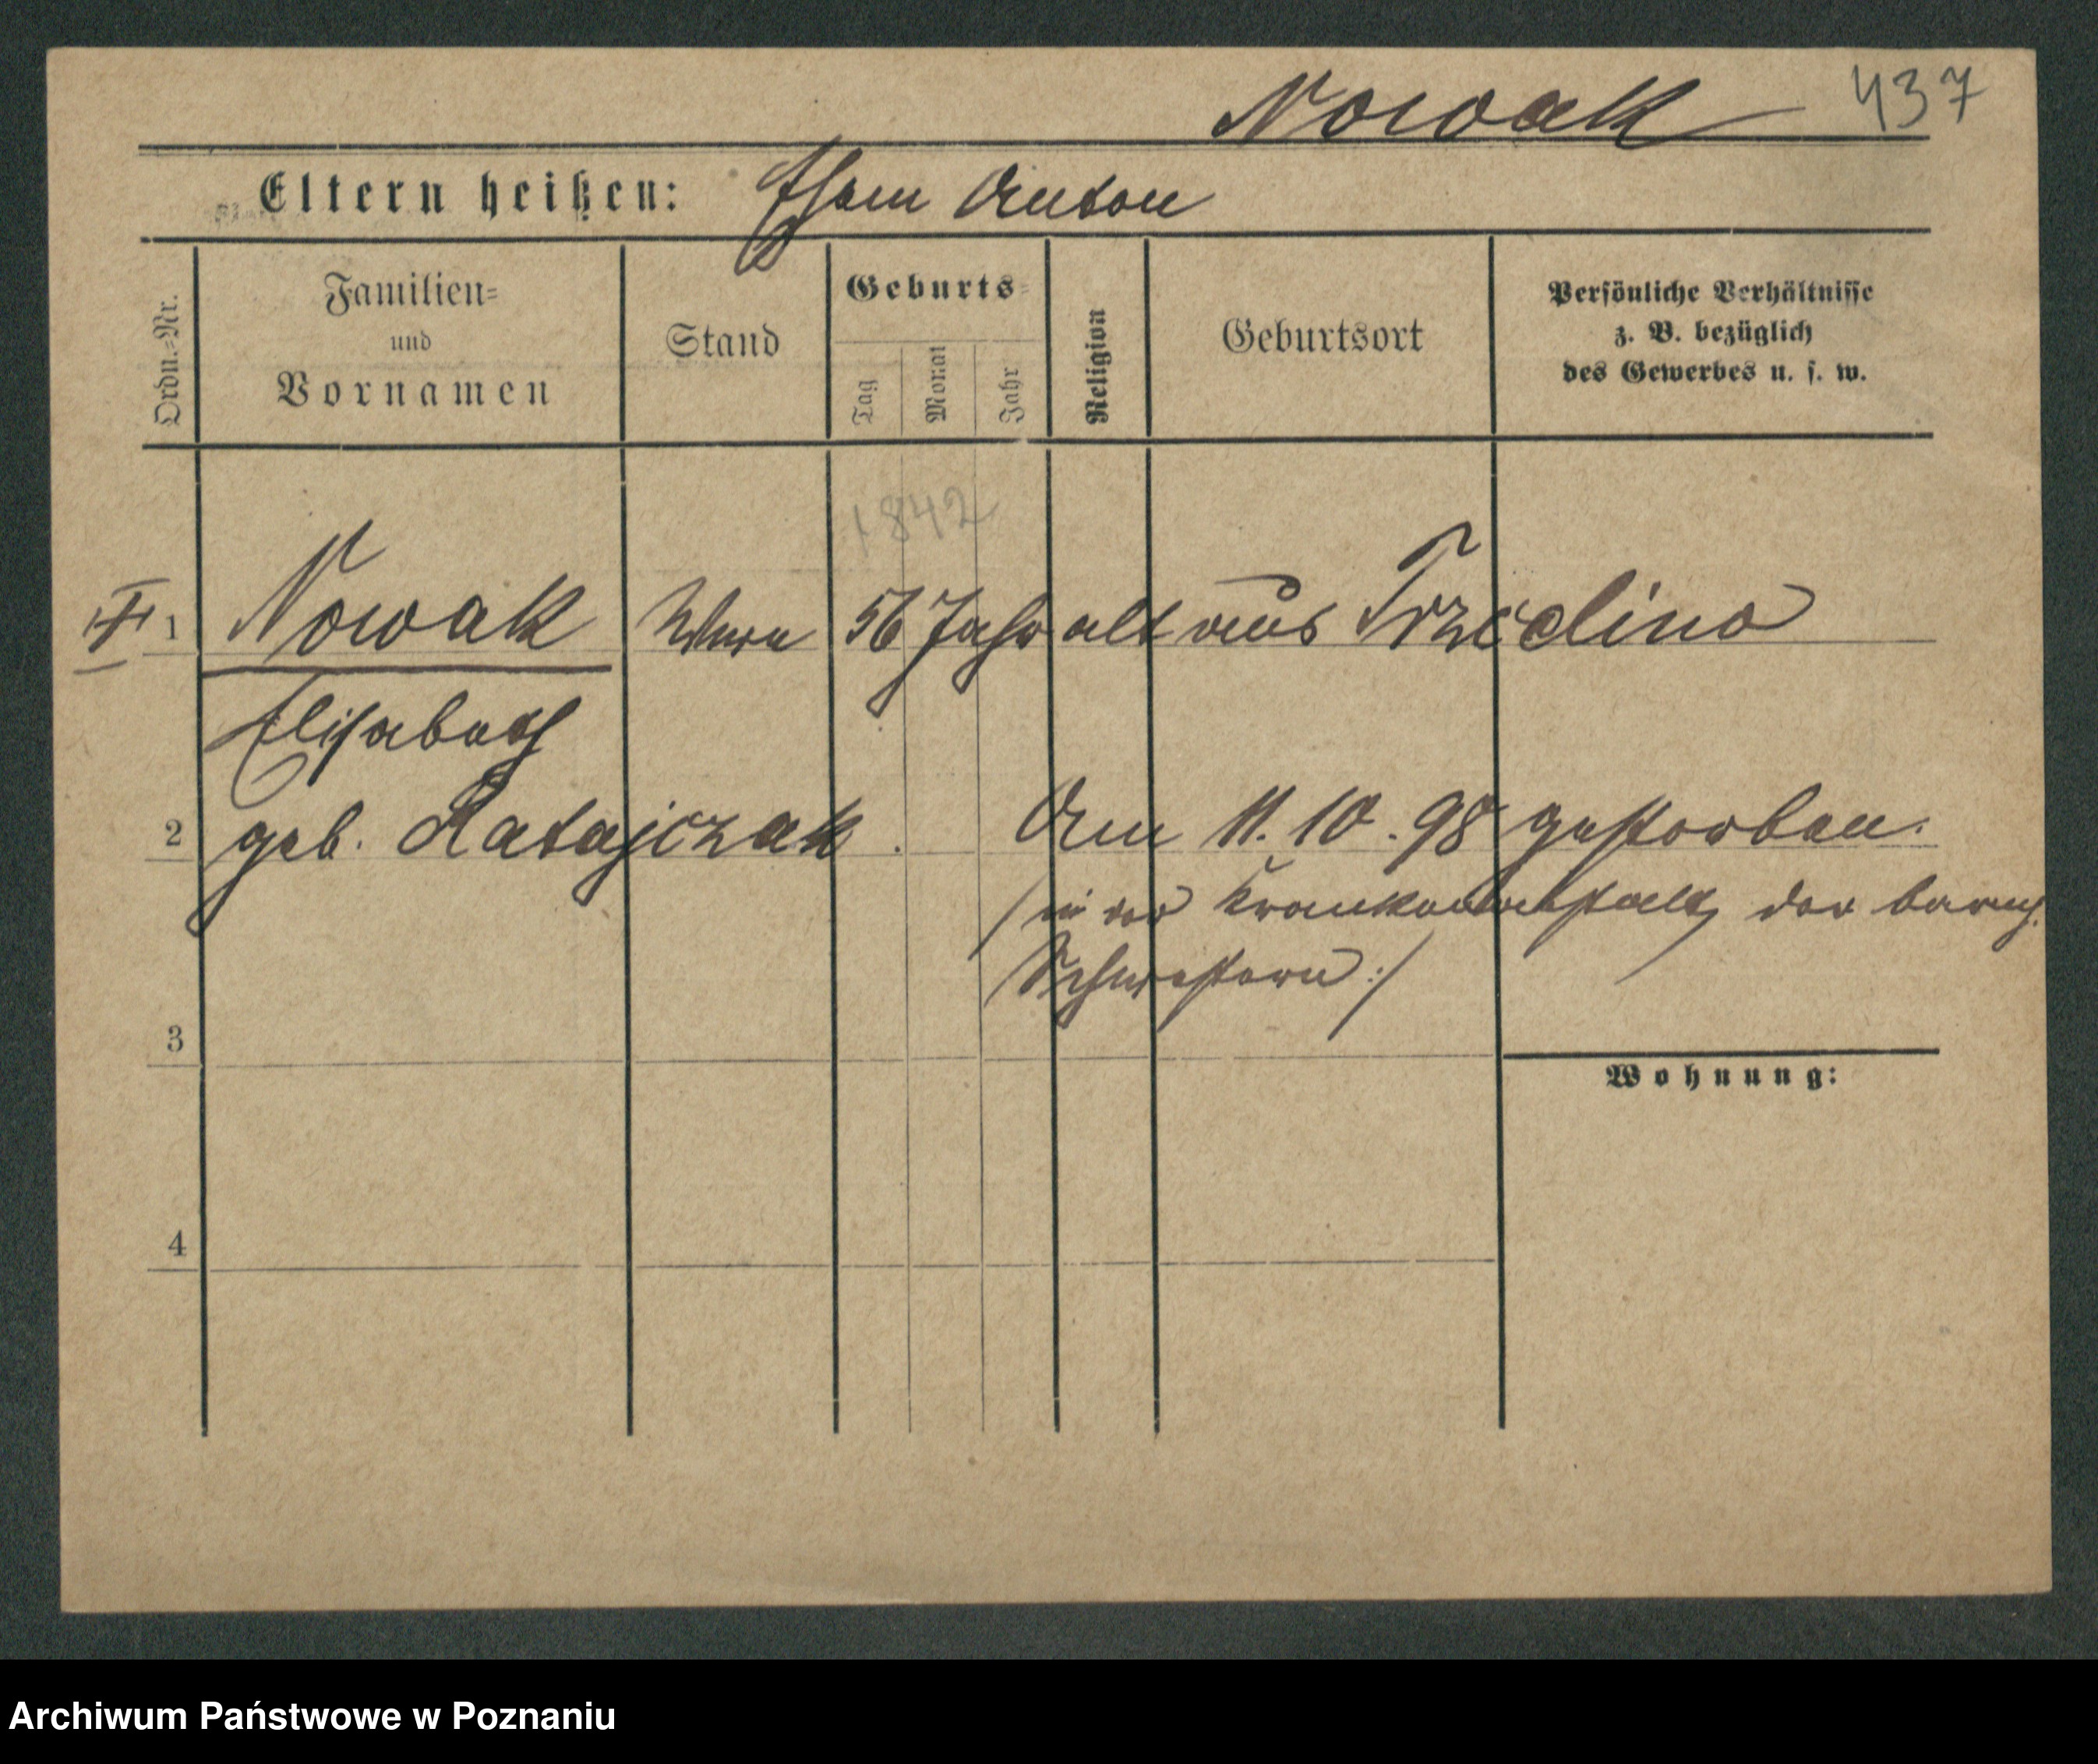 Nowak 437
Eltern heißen: Ehem Anton
Ordn.=Nr.
Familien=
und
Vornamen
Stand
Geburts=
Tag
Monat
Jahr
Religion
Geburtsort
Persönliche Verhältnisse
z. B. bezüglich
des Gewerbes u. s. w.
1842
1 Nowak Wwe 56 Jahr alt aus
Elisabeth
2 geb. Ratajczak. Am 11. 10. 98 gestorben.
/in der Krankenanstalt der barmh.
Schwestern :/
3
Wohnung:
4
Archiwum Państwowe w Poznaniu